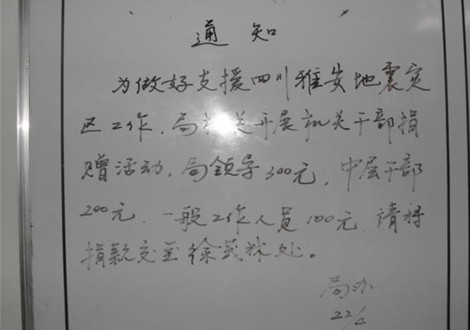 通知
为做好支援四川雅安地震灾
区工作，局机关开展机关干部捐
赠活动，局领导300元，中层干部
200元，一般工作人员100元，请将
捐款交至徐处。
局办
22/4